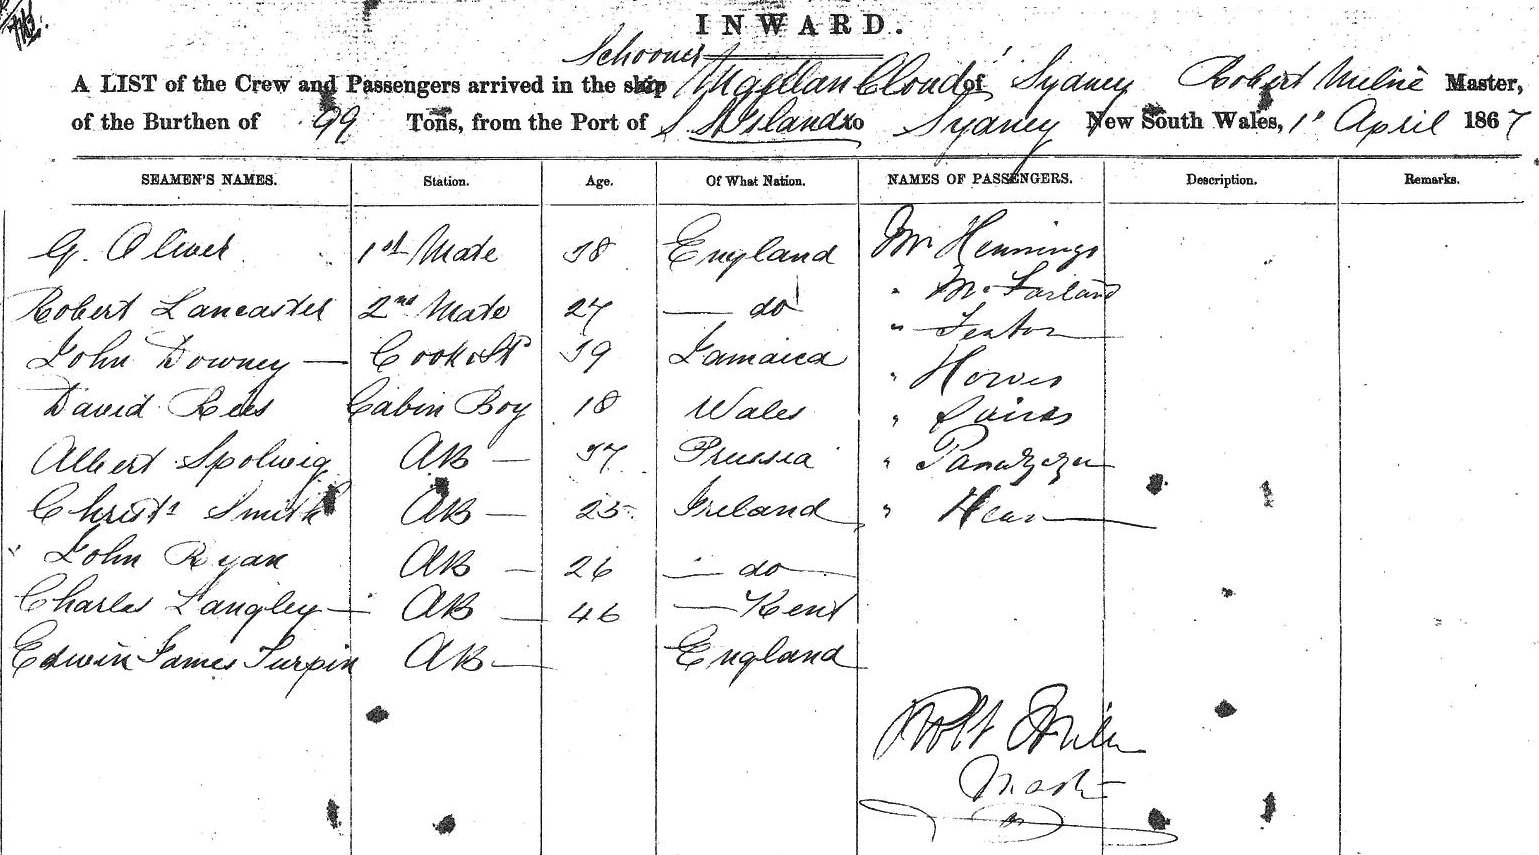 INWARD.
Schooner
A LIST of the Crew and Passengers arrived in the ship Magellan Cloud of Sydney Robert Milne Master,
of the Burthen of 99 Tons, from the Port of S S Islands to Sydney New South Wales, 1st April 1867
SEAMEN'S NAMES. Station. Age. Of What Nation. NAMES OF PASSENGERS. Description. Remarks.
G. Oliver 1st Mate 38 England Mr Hennings
" McFarland
Robert Lancaster 2nd Mate 27 — do
" Fenton
John Downey — Cook & St 39 Jamaica
" Howes
David Rees Cabin Boy 18 Wales "
Albert Spolwig AB — 37 Prussia "
Christr Smith AB — 25 Ireland "
" John Ryan AB — 26 — do —
Charles Langley — AB — 46 — Kent
Edwin James Turpin AB — England
Robt Milne
Master